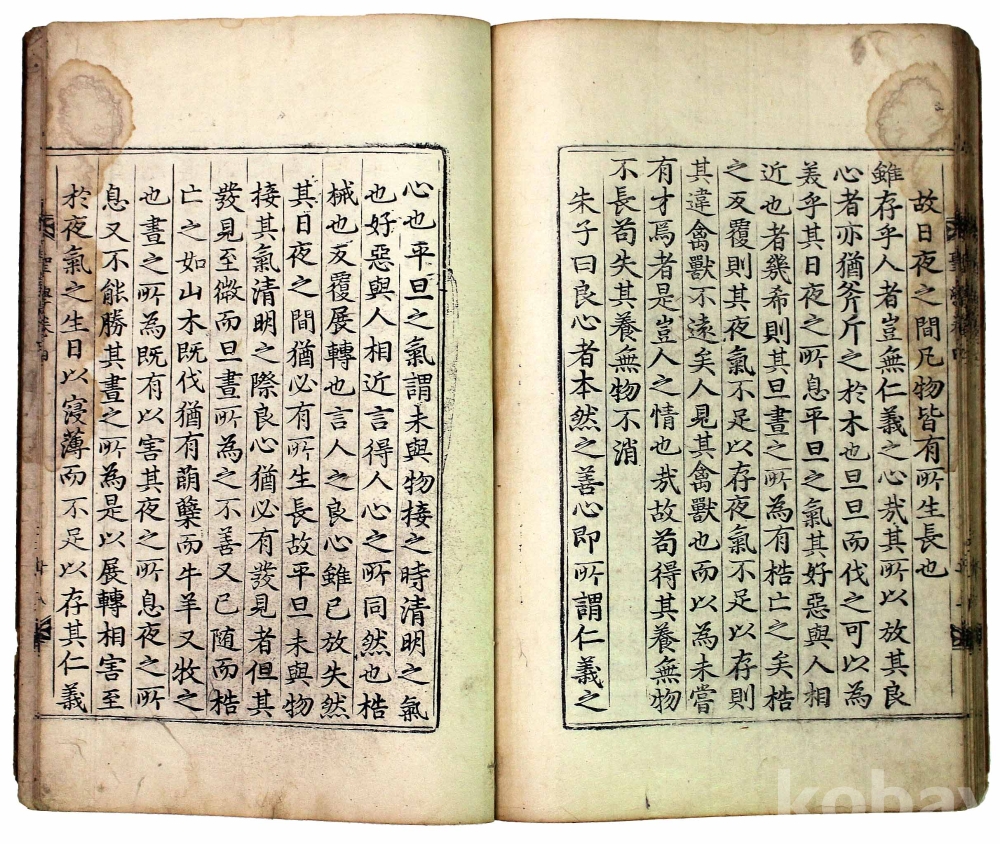 故日夜之間凡物皆有所生長也
雖存乎人者豈無仁義之心㢤其所以放其良
心者亦猶斧斤之於木也旦旦而伐之可以為
美乎其日夜之所息平旦之氣其好惡與人相
近也者幾希則其旦晝之所為有梏亡之矣梏
之反覆則其夜氣不足以存夜氣不足以存則
其違禽獸不遠矣人見其禽獸也而以為未嘗
有才焉者是豈人之情也㢤故苟得其養無物
不長苟失其養無物不消
朱子曰良心者本然之善心即所謂仁義之
心也平旦之氣謂未與物接之時清明之氣
也好惡與人相近言得人心之所同然也梏
械也反覆展轉也言人之良心雖已放失然
其日夜之間猶必有所生長故平旦未與物
接其氣清明之際良心猶必有發見者但其
發見至微而旦晝所為之不善又已隨而梏
亡之如山木既伐猶有萌蘖而牛羊又牧之
也晝之所為既有以害其夜之所息夜之所
息又不能勝其晝之所為是以展轉相害至
於夜氣之生日以寖薄而不足以存其仁義
kobay